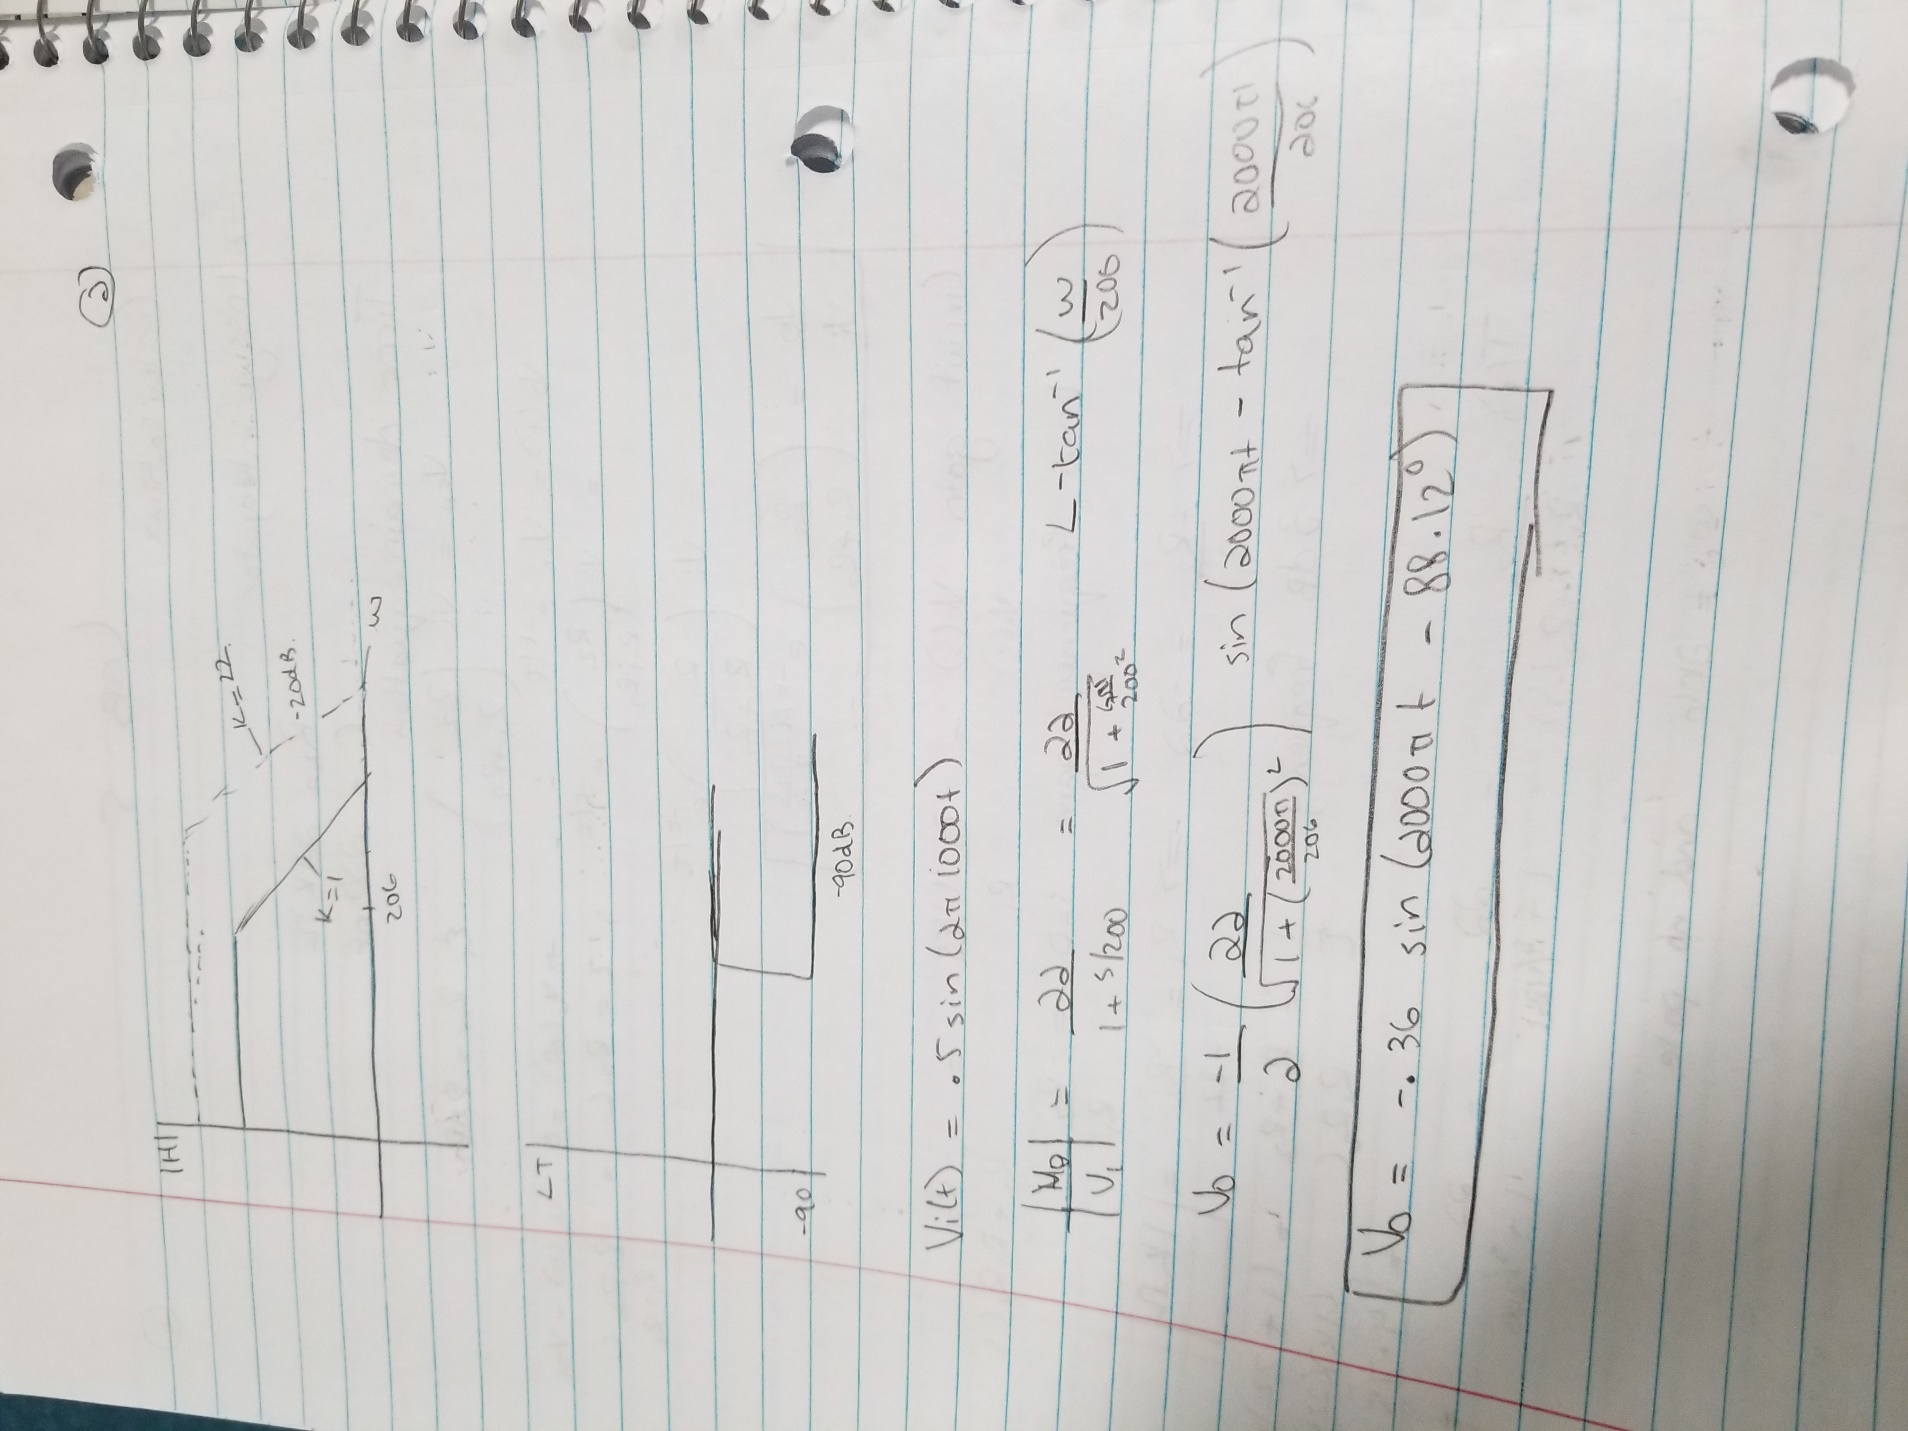 ②
|H|
K=22
-20dB.
K=1
206
ω
∠T
-90
-90dB.
Vi(t) = .5 sin(2π 1000t)
|Mθ / Vi| = 22 / (1 + s/200) = 22 / √(1 + ω²/200²) ∠-tan⁻¹(ω/206)
Vo = -1/2 (22 / √(1 + (2000π/206)²)) sin(2000πt - tan⁻¹(2000π/206))
Vo = -.36 sin(2000πt - 88.12°)